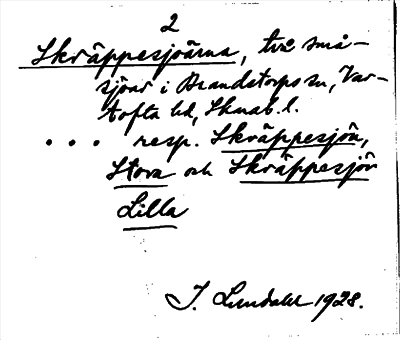 2
Skräppesjöarna, två små-
sjöar i Brandstorps sn, Var-
tofta hd, Skarab. l.
. . . resp. Skräppesjön,
Stora och Skräppesjön
Lilla
J. Lundahl 1928.